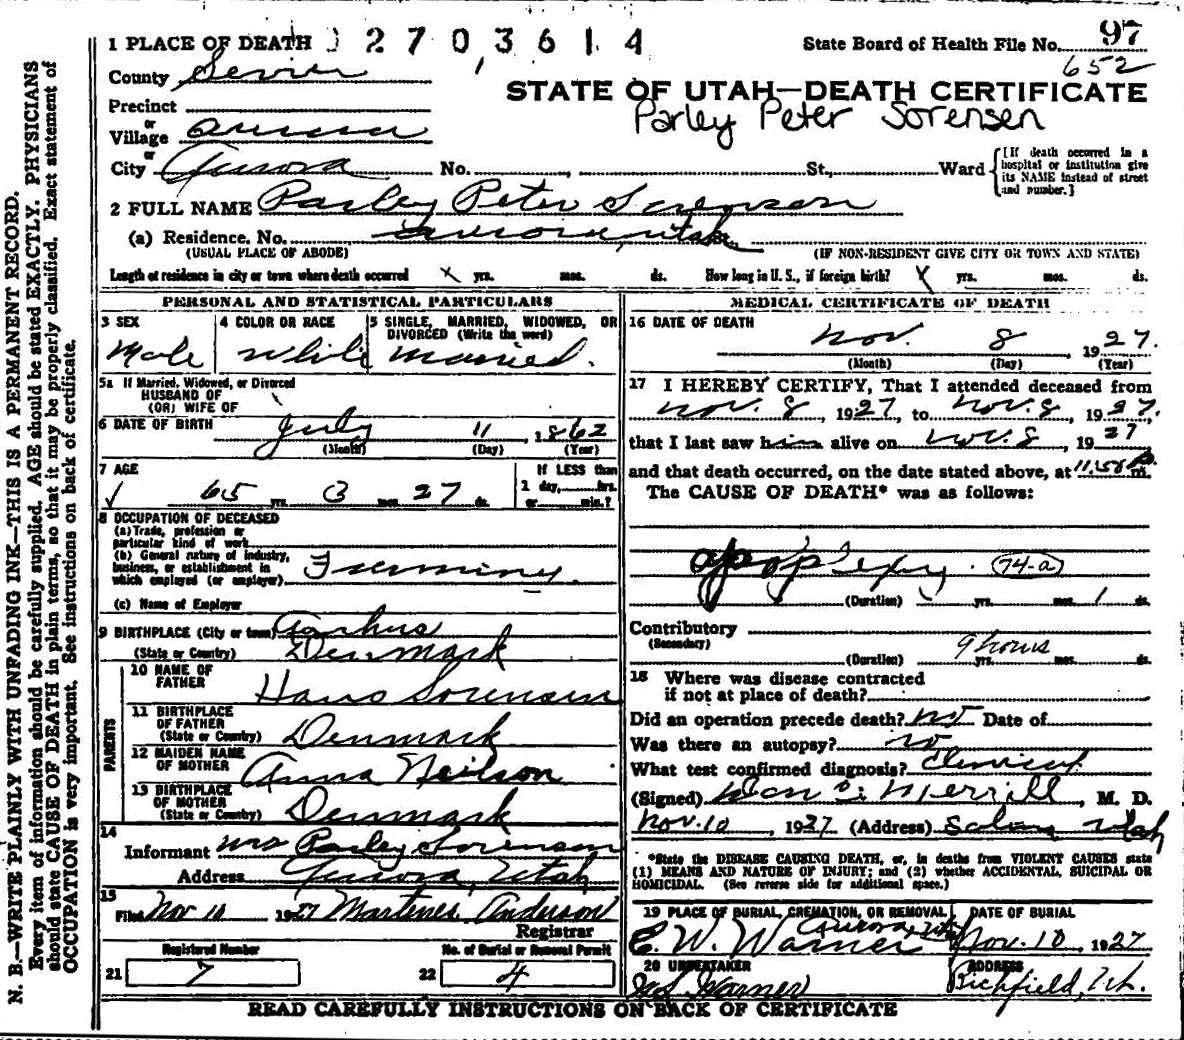 1 PLACE OF DEATH 2 7 0 3 6 1 4
State Board of Health File No. 97
652
County Sevier
STATE OF UTAH—DEATH CERTIFICATE
Parley Peter Sorensen
Precinct
or
Village Aurora
or
City Aurora No. , St., Ward
[If death occurred in a
hospital or institution give
its NAME instead of street
and number.]
2 FULL NAME Parley Peter Sorensen
(a) Residence. No. Aurora, Utah
(USUAL PLACE OF ABODE) (IF NON-RESIDENT GIVE CITY OR TOWN AND STATE)
Length of residence in city or town where death occurred x yrs. mos. ds. How long in U. S., if foreign birth? x yrs. mos. ds.
PERSONAL AND STATISTICAL PARTICULARS
3 SEX
Male
4 COLOR OR RACE
White
5 SINGLE, MARRIED, WIDOWED, OR
DIVORCED (Write the word)
Married.
5a If Married, Widowed, or Divorced
HUSBAND OF
(OR) WIFE OF
6 DATE OF BIRTH July 11, 1862
(Month) (Day) (Year)
7 AGE
65 yrs. 3 mos. 27 ds.
If LESS than
1 day, hrs.
or min.?
8 OCCUPATION OF DECEASED
(a) Trade, profession or
particular kind of work
(b) General nature of industry,
business, or establishment in
which employed (or employer) Farming.
(c) Name of Employer
9 BIRTHPLACE (City or town) Aarhus
(State or Country) Denmark
PARENTS
10 NAME OF
FATHER Hans Sorensen
11 BIRTHPLACE
OF FATHER
(State or Country) Denmark
12 MAIDEN NAME
OF MOTHER Anna Neilson
13 BIRTHPLACE
OF MOTHER
(State or Country) Denmark
14
Informant Mrs Parley Sorensen
Address Aurora, Utah
15
Filed Nov 10 1927 Martines Anderson
Registrar
Registered Number
21 7
No. of Burial or Removal Permit
22 4
MEDICAL CERTIFICATE OF DEATH
16 DATE OF DEATH
Nov. 8, 1927.
(Month) (Day) (Year)
17 I HEREBY CERTIFY, That I attended deceased from
Nov. 8, 1927, to Nov. 8, 1927,
that I last saw him alive on Nov. 8, 1927
and that death occurred, on the date stated above, at 11.58 P m.
The CAUSE OF DEATH* was as follows:
apoplexy. 74-a
(Duration) yrs. mos. 1 ds.
Contributory
(Secondary)
9 hours
(Duration) yrs. mos. ds.
18 Where was disease contracted
if not at place of death?
Did an operation precede death? no Date of
Was there an autopsy? no
What test confirmed diagnosis? Clinical
(Signed) Merrill, M. D.
Nov. 10, 1927 (Address) Salina Utah
*State the DISEASE CAUSING DEATH, or, in deaths from VIOLENT CAUSES state
(1) MEANS AND NATURE OF INJURY; and (2) whether ACCIDENTAL, SUICIDAL OR
HOMICIDAL. (See reverse side for additional space.)
19 PLACE OF BURIAL, CREMATION, OR REMOVAL
Aurora Utah
C. W. Warner
DATE OF BURIAL
Nov. 10, 1927
20 UNDERTAKER
Warner
ADDRESS
Richfield, Ut.
READ CAREFULLY INSTRUCTIONS ON BACK OF CERTIFICATE
N. B.—WRITE PLAINLY WITH UNFADING INK—THIS IS A PERMANENT RECORD.
Every item of information should be carefully supplied. AGE should be stated EXACTLY. PHYSICIANS
should state CAUSE OF DEATH in plain terms, so that it may be properly classified. Exact statement of
OCCUPATION is very important. See instructions on back of certificate.